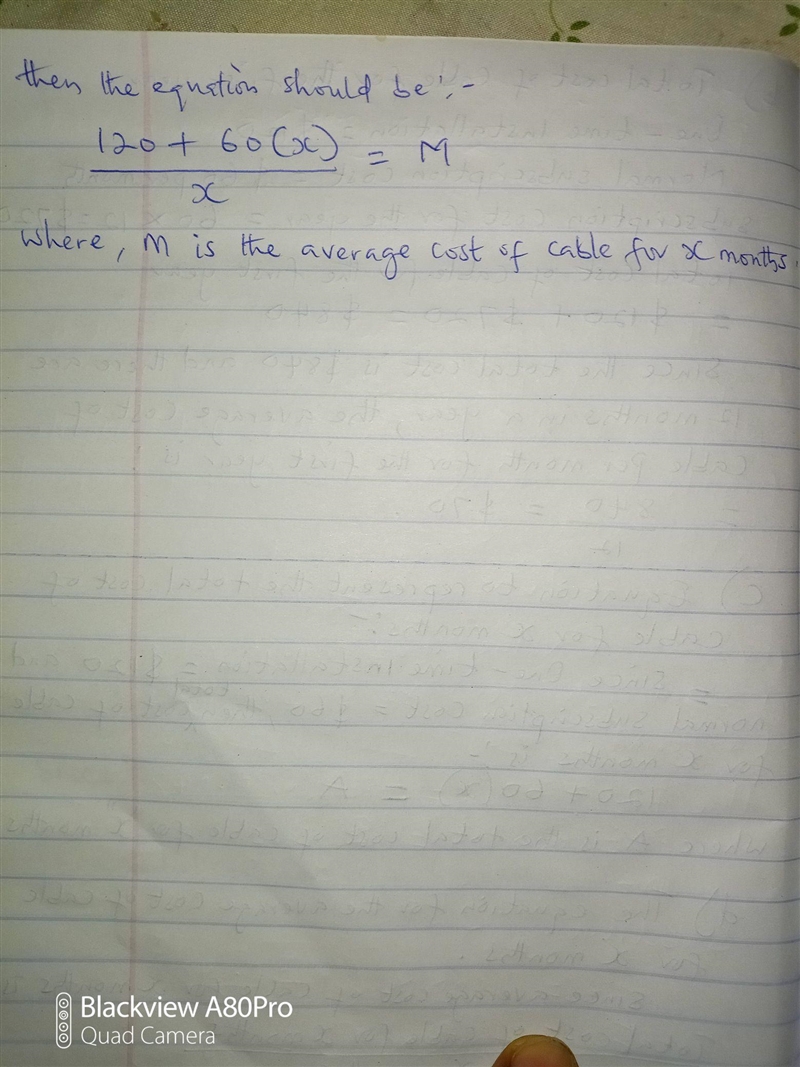 then the equation should be :-
120 + 60(x) = M
x
where, M is the average cost of cable for x months.
Blackview A80Pro
Quad Camera